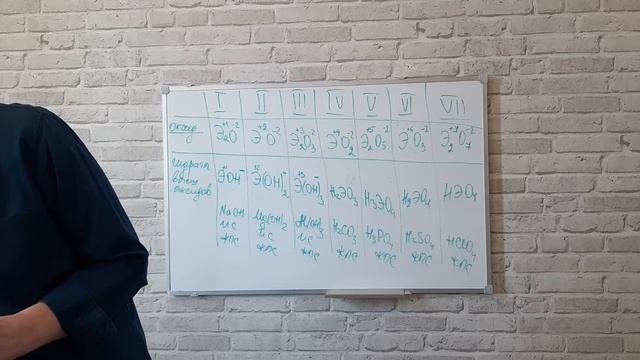 I II III IV V VI VII
оксид Э₂⁺¹O⁻² Э⁺²O⁻² Э₂⁺³O₃⁻² Э⁺⁴O₂⁻² Э₂⁺⁵O₅⁻² Э⁺⁶O₃⁻² Э₂⁺⁷O₇⁻²
гидраты
высш
оксидов
Э⁺¹OH⁻ Э⁺²(OH)₂⁻ Э⁺³(OH)₃⁻ H₂ЭO₃ H₃ЭO₄ H₂ЭO₄ HЭO₄
NaOH Mg(OH)₂ Al(OH)₃ H₂CO₃ H₃PO₄ H₂SO₄ HClO₄
ис ис ис